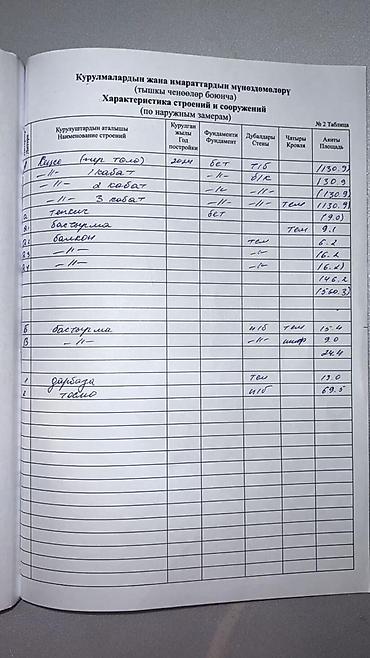 Курулмалардын жана имараттардын мүнөздөмөлөрү
(тышкы ченөөлөр боюнча)
Характеристика строений и сооружений
(по наружным замерам)
№ 2 Таблица
Курулуштардын аталышы Наименование строений Курулган жылы Год постройки Фундаменти Фундамент Дубалдары Стены Чатыры Кровля Аянты Площадь
2024 бет т/б (130.9)
-//- 1 кабат -//- б/к (130.9
-//- 2 кабат -//- -//- (130.9)
-//- 3 кабат -//- -//- тем (130.9)
а тепкич бет (9.0)
а1 бастырма тем 9.1
а2 балкон тем 6.2
а3 -//- -//- (6.2
а4 -//- -//- (6.2)
146.2
(560.3)
Б бастырма и/б тем 15.4
В -//- -//- шиф 9.0
24.4
1 дарбаза тем 13.0
2 тосмо и/б 69.5